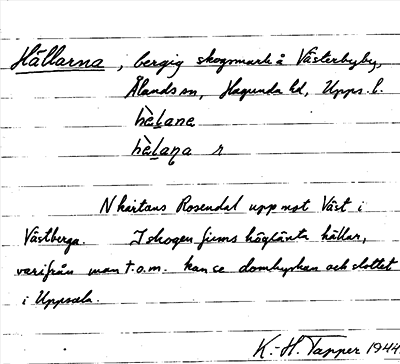 Hällarna, bergig skogsmark å Västerbyby,
Ålands sn, Hagunda hd, Upps. l.
hὲLane
hὲLaṇa r
N kartans Rosendal upp mot Väst i
Västberga. I skogen finns höglänta hällar,
varifrån man t.o.m. kan se domkyrkan och slottet
i Uppsala.
K.-H. Tapper 1944